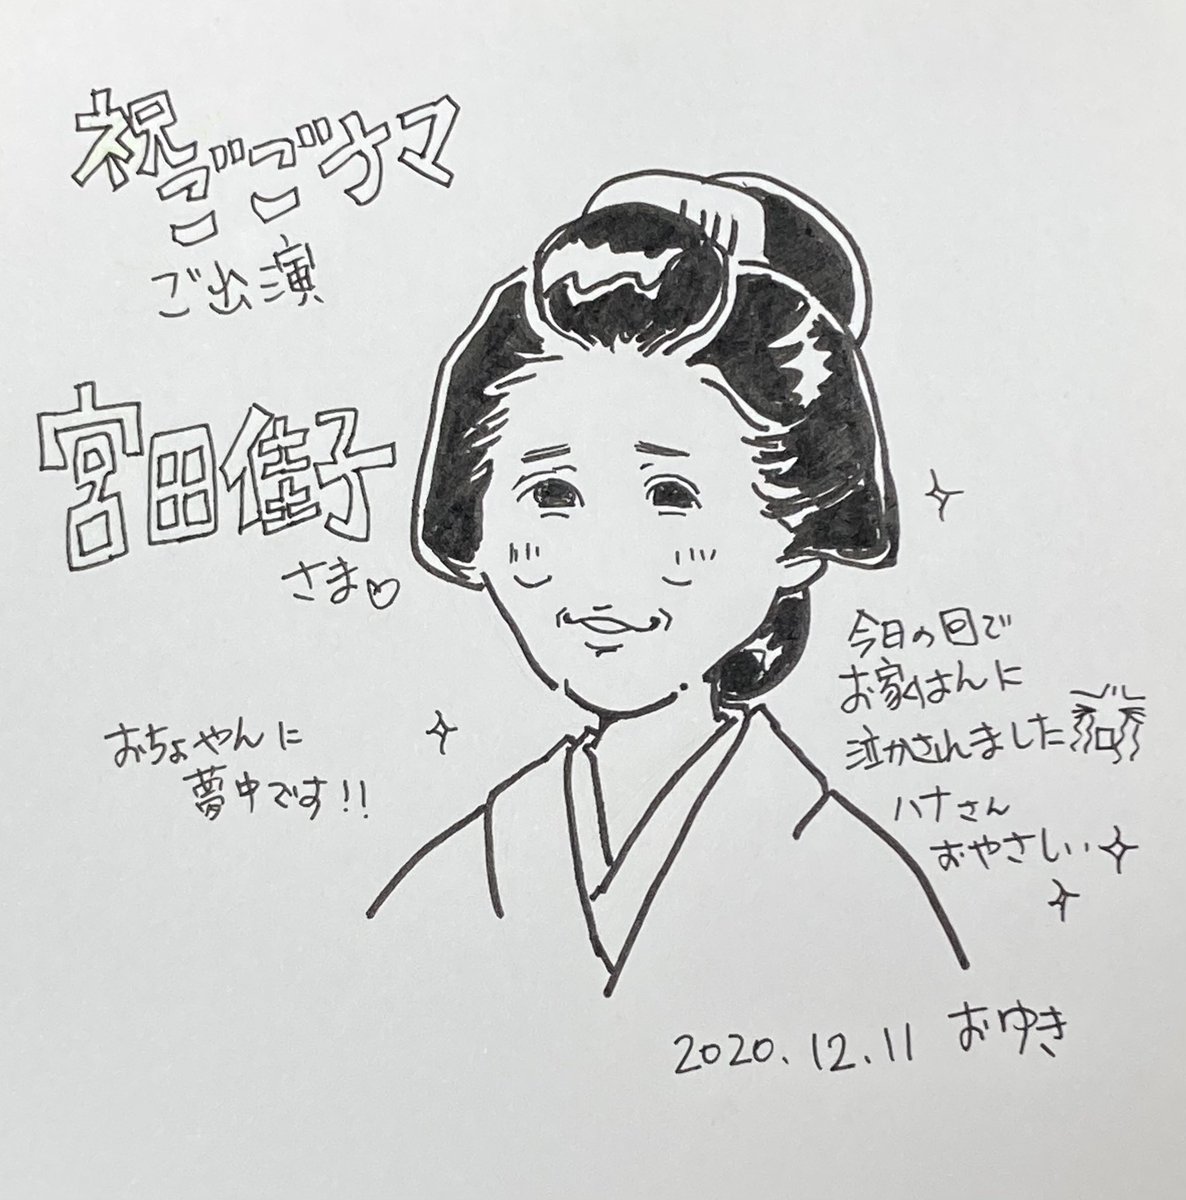 祝ごごナマ
ご出演
宮田佳子
さま♡
おちょやんに
夢中です!!
今日の回で
お家はんに
泣かされました
ハナさん
おやさしい‥
2020.12.11 おゆき